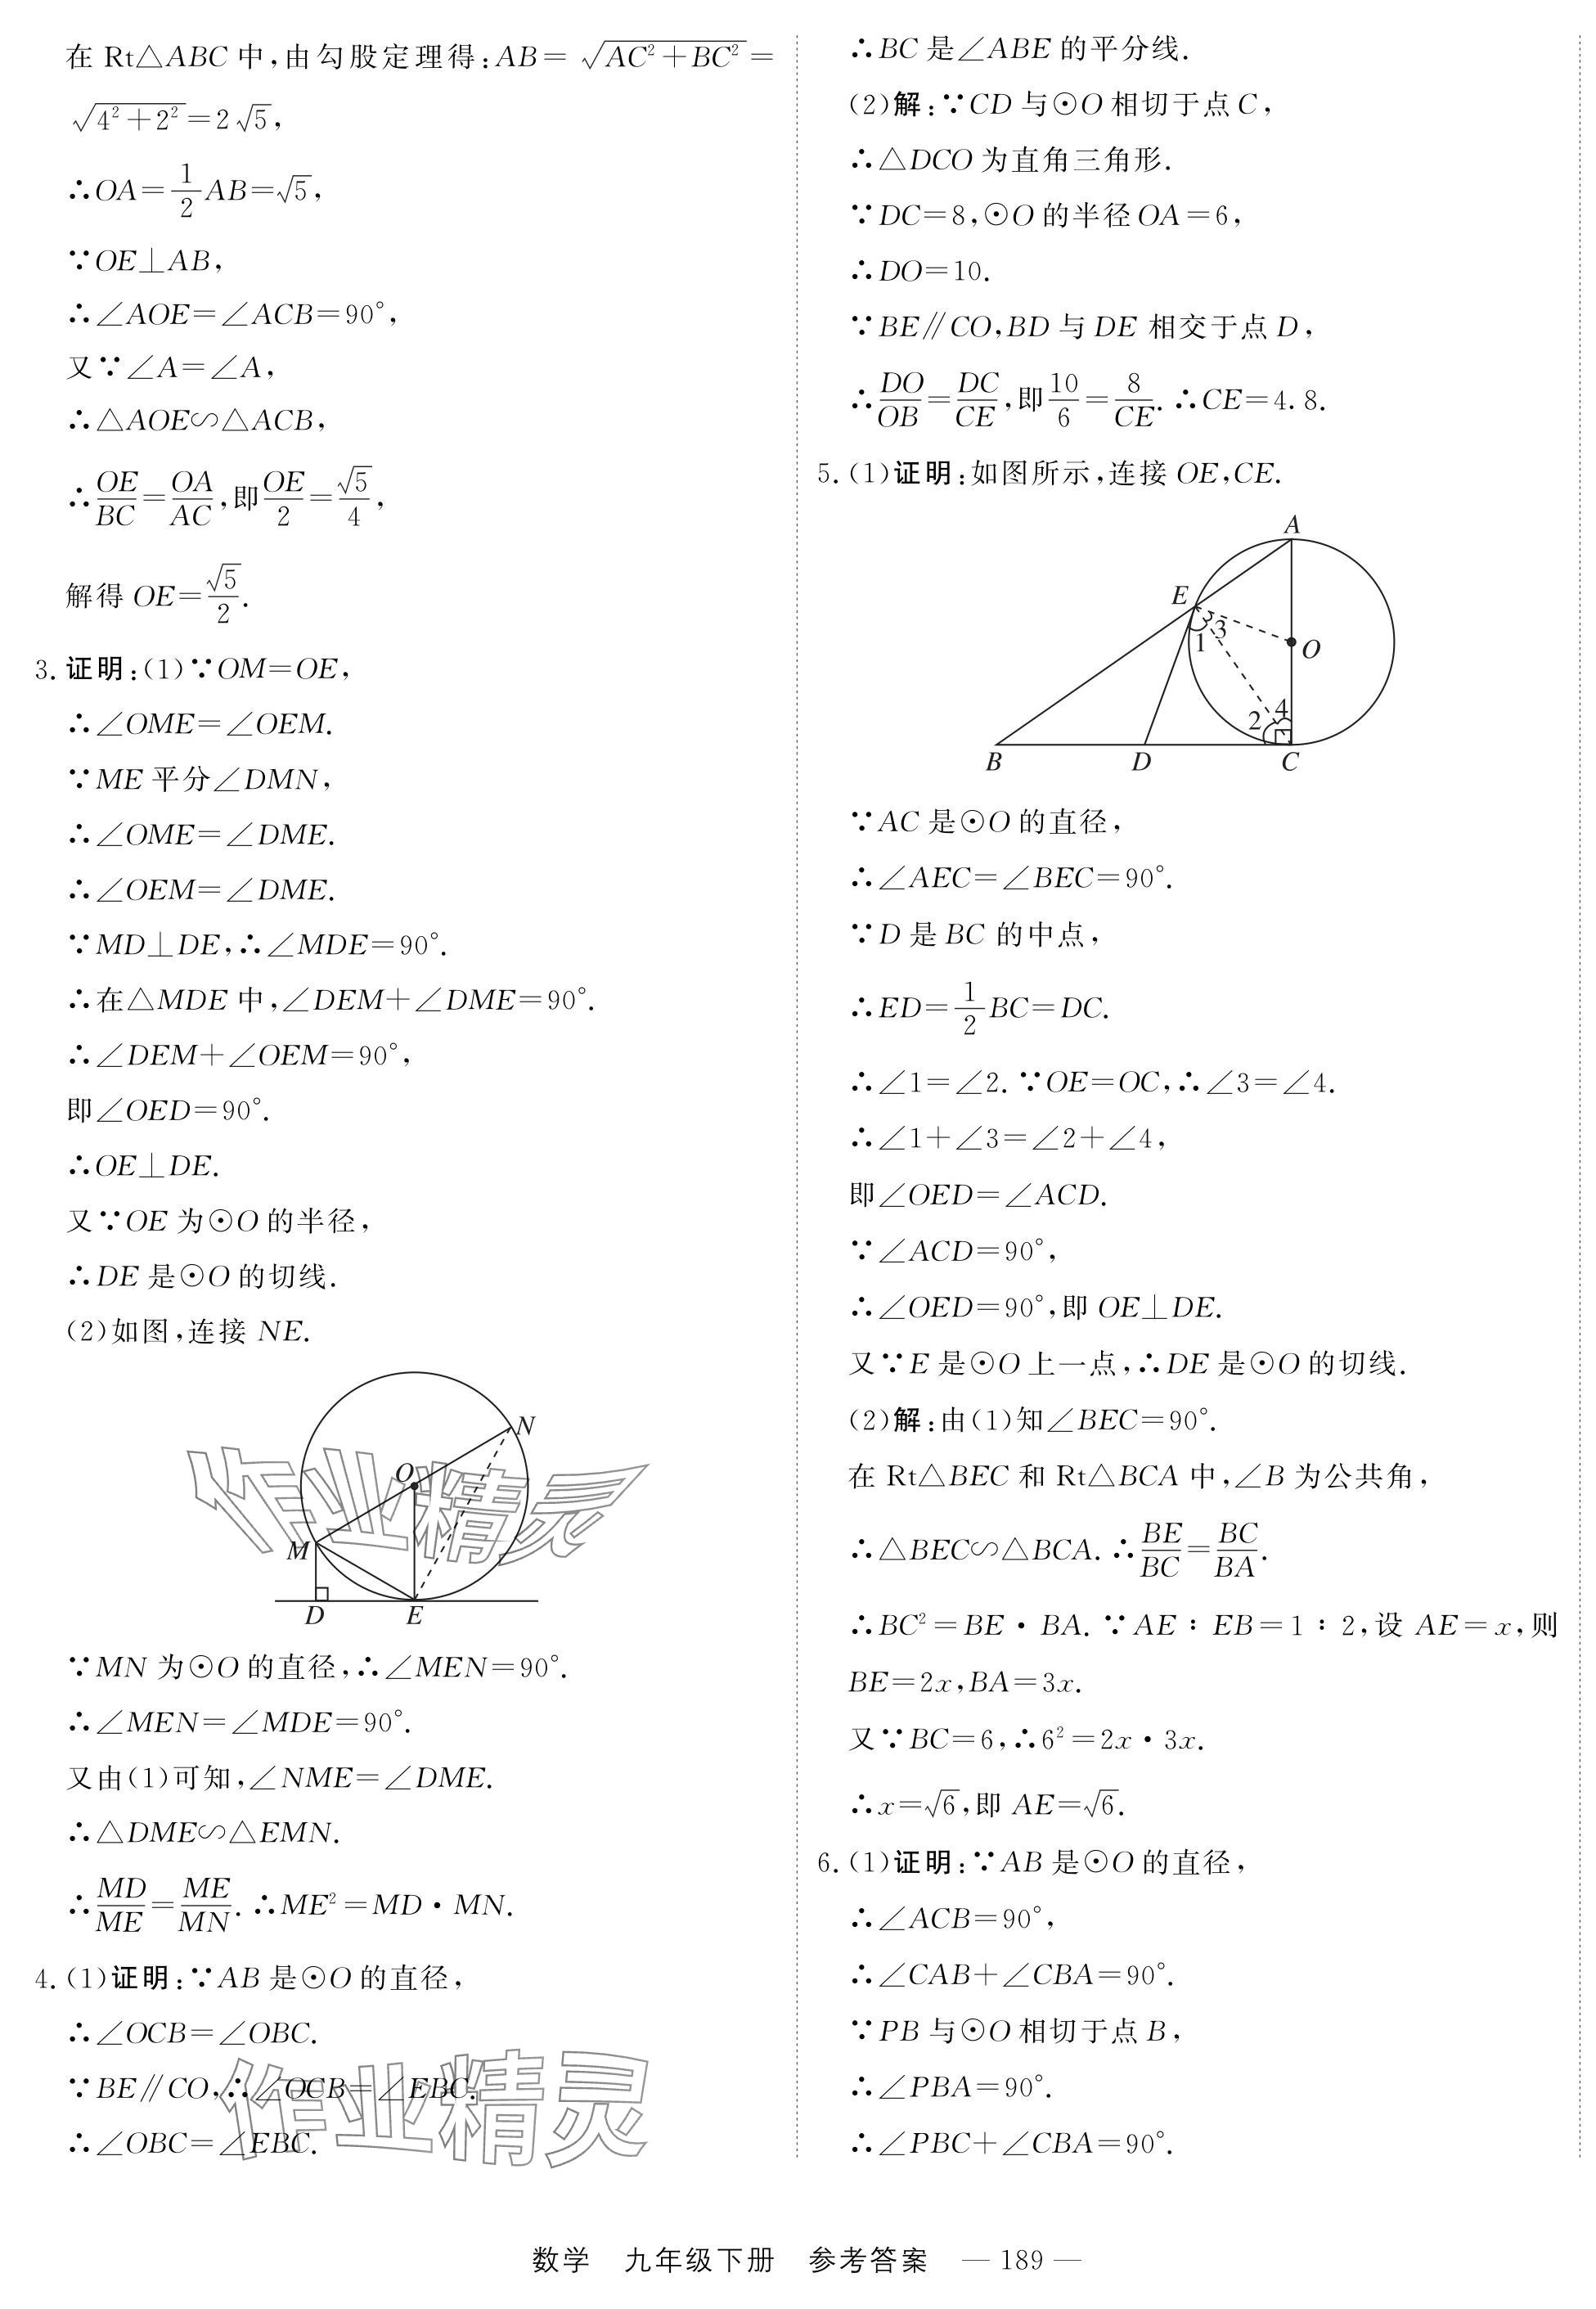 在 Rt△ABC 中,由勾股定理得:AB=√(AC²+BC²)=
√(4²+2²)=2√5,
∴OA=1/2AB=√5,
∵OE⊥AB,
∴∠AOE=∠ACB=90°,
又∵∠A=∠A,
∴△AOE∽△ACB,
∴OE/BC=OA/AC,即OE/2=√5/4,
解得 OE=√5/2.
3.证明:(1)∵OM=OE,
∴∠OME=∠OEM.
∵ME 平分∠DMN,
∴∠OME=∠DME.
∴∠OEM=∠DME.
∵MD⊥DE,∴∠MDE=90°.
∴在△MDE 中,∠DEM+∠DME=90°.
∴∠DEM+∠OEM=90°,
即∠OED=90°.
∴OE⊥DE.
又∵OE 为⊙O 的半径,
∴DE 是⊙O 的切线.
(2)如图,连接 NE.
N
O
M
D E
∵MN 为⊙O 的直径,∴∠MEN=90°.
∴∠MEN=∠MDE=90°.
又由(1)可知,∠NME=∠DME.
∴△DME∽△EMN.
∴MD/ME=ME/MN.∴ME²=MD·MN.
4.(1)证明:∵AB 是⊙O 的直径,
∴∠OCB=∠OBC.
∵BE∥CO,∴∠OCB=∠EBC.
∴∠OBC=∠EBC.
∴BC 是∠ABE 的平分线.
(2)解:∵CD 与⊙O 相切于点 C,
∴△DCO 为直角三角形.
∵DC=8,⊙O 的半径 OA=6,
∴DO=10.
∵BE∥CO,BD 与 DE 相交于点 D,
∴DO/OB=DC/CE,即10/6=8/CE.∴CE=4.8.
5.(1)证明:如图所示,连接 OE,CE.
A
E
3
1
O
4
2
B D C
∵AC 是⊙O 的直径,
∴∠AEC=∠BEC=90°.
∵D 是 BC 的中点,
∴ED=1/2BC=DC.
∴∠1=∠2.∵OE=OC,∴∠3=∠4.
∴∠1+∠3=∠2+∠4,
即∠OED=∠ACD.
∵∠ACD=90°,
∴∠OED=90°,即 OE⊥DE.
又∵E 是⊙O 上一点,∴DE 是⊙O 的切线.
(2)解:由(1)知∠BEC=90°.
在 Rt△BEC 和 Rt△BCA 中,∠B 为公共角,
∴△BEC∽△BCA.∴BE/BC=BC/BA.
∴BC²=BE·BA.∵AE∶EB=1∶2,设 AE=x,则
BE=2x,BA=3x.
又∵BC=6,∴6²=2x·3x.
∴x=√6,即 AE=√6.
6.(1)证明:∵AB 是⊙O 的直径,
∴∠ACB=90°,
∴∠CAB+∠CBA=90°.
∵PB 与⊙O 相切于点 B,
∴∠PBA=90°.
∴∠PBC+∠CBA=90°.
作业精灵
作业精灵
数学 九年级下册 参考答案 — 189 —